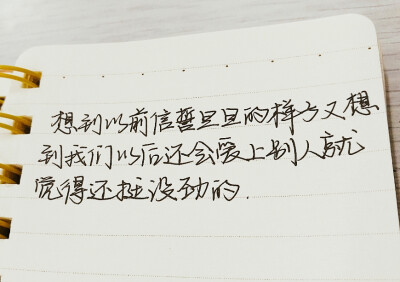 想到以前信誓旦旦的样子又想
到我们以后还会爱上别人就
觉得还挺没劲的.